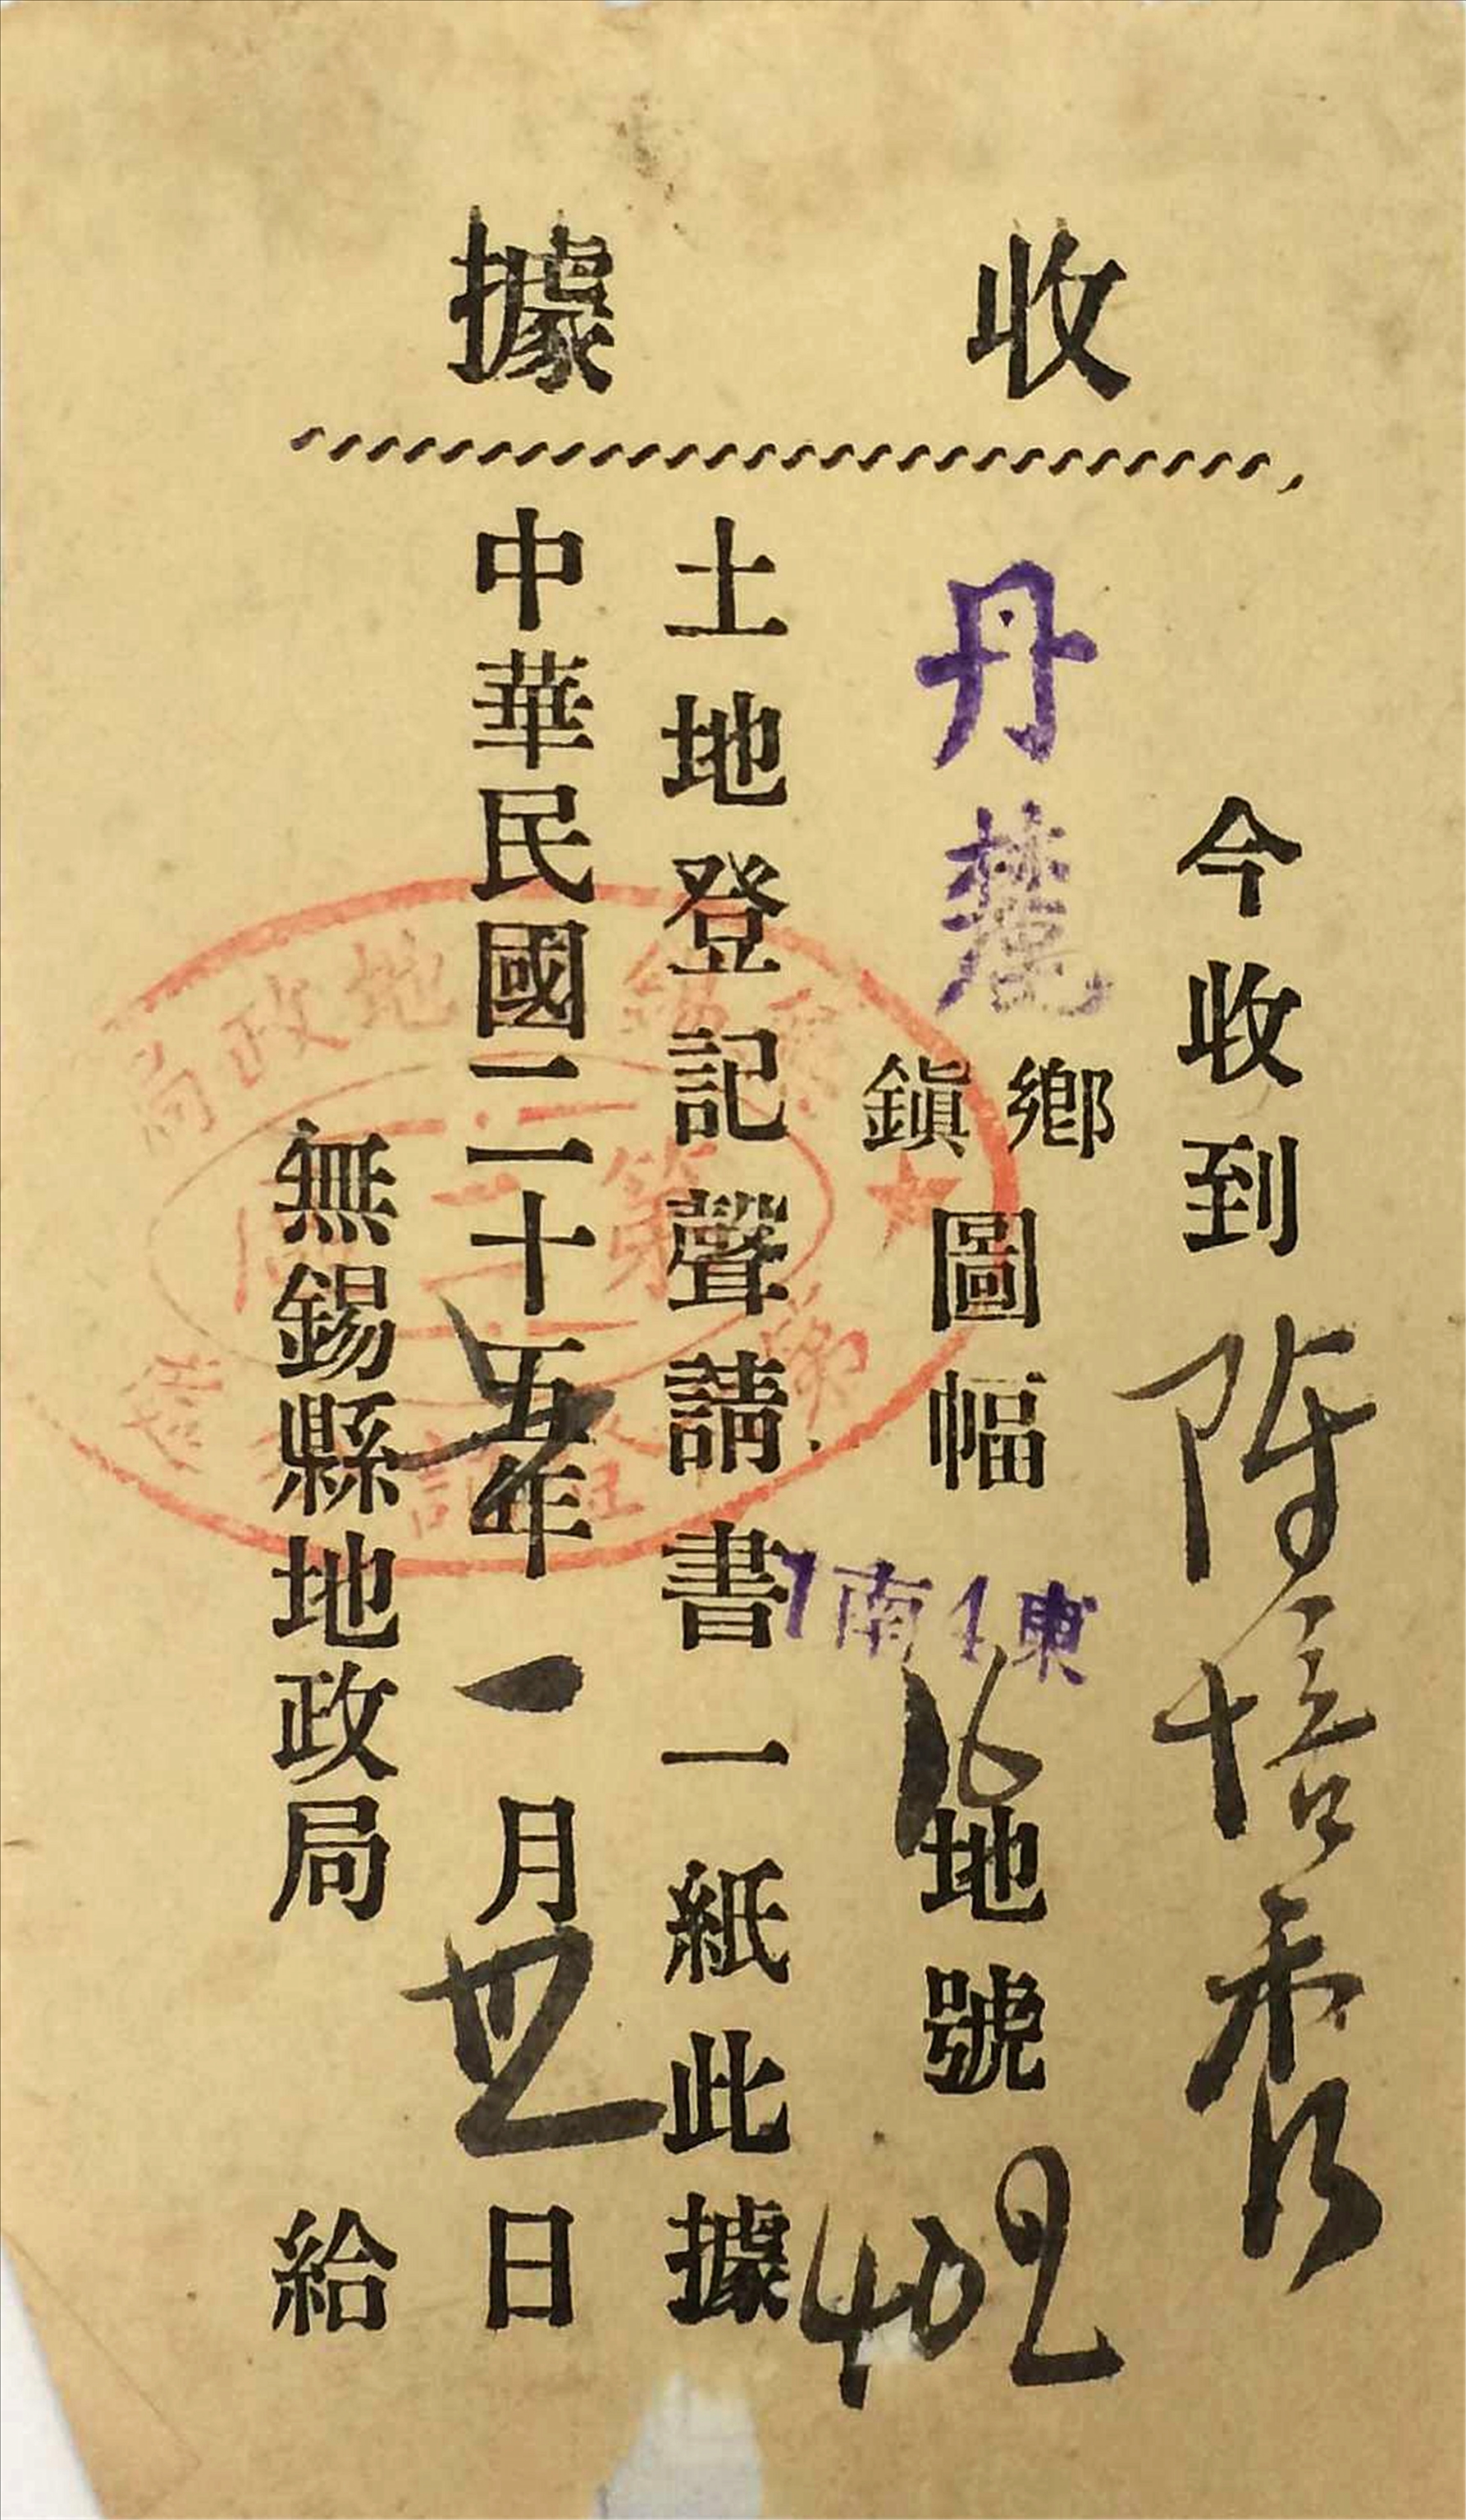 收據
今收到陈培秀
丹麓
鄉
鎮
圖幅
東4南1
16
地號
402
土地登記聲請書一紙此據
中華民國二十五年
一月
日
無錫縣地政局
給
無錫
地政局
第二
第
登記